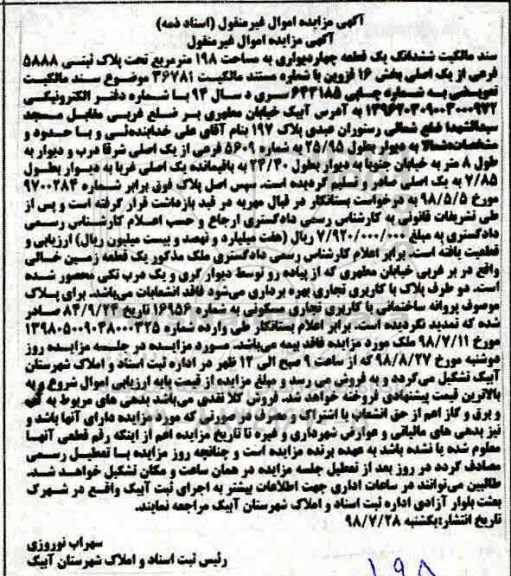 آگهی مزایده اموال غیرمنقول (اسناد ذمه)
آگهی مزایده اموال غیرمنقول
سند مالکیت ششدانگ یک قطعه چهاردیواری به مساحت ۱۹۸ مترمربع تحت پلاک ثبتی ۵۸۸۸
فرعی از یک اصلی بخش ۱۶ قزوین با شماره مستند مالکیت ۳۶۷۸۱ موضوع سند مالکیت
تعویضی به شماره چاپی ۶۴۳۱۸۵ سری د سال ۹۴ با شماره دفتر الکترونیکی
۱۳۹۶۲۰۳۰۹۰۰۳۰۰۰۹۷۲ به آدرس آبیک خیابان مطهری بر ضلع غربی مقابل مسجد
سیدالشهدا ضلع شمالی رستوران عبدی پلاک ۱۹۷ بنام آقای علی خدابنده‌ئی و با حدود و
مشخصات‌شمالا به دیوار بطول ۲۵/۹۵ به شماره ۵۶۰۹ فرعی از یک اصلی شرقا درب و دیوار به
طول ۸ متر به خیابان جنوبا به دیوار بطول ۲۴/۴۰ به باقیمانده یک اصلی غربا به دیوار بطول
۷/۸۵ به یک اصلی صادر و تسلیم گردیده است. سپس اصل پلاک فوق برابر شماره ۹۷۰۰۲۸۴
مورخ ۹۸/۵/۵ به درخواست بستانکار در قبال مهریه در قید بازداشت قرار گرفته است و پس از
طی تشریفات قانونی به کارشناس رسمی دادگستری ارجاع و حسب اعلام کارشناس رسمی
دادگستری به مبلغ ۷/۹۲۰/۰۰۰/۰۰۰ ریال (هفت میلیارد و نهصد و بیست میلیون ریال) ارزیابی و
قطعیت یافته است. برابر اعلام کارشناس رسمی دادگستری ملک مذکور یک قطعه زمین خالی
واقع در بر غربی خیابان مطهری که از پیاده رو توسط دیوار گری و یک درب تکی محصور شده
است. دو طرف پلاک با کاربری تجاری بهره برداری می‌شود فاقد انشعابات می‌باشد. برای پلاک
موصوف پروانه ساختمانی با کاربری تجاری مسکونی به شماره ۱۶۹۵۶ تاریخ ۸۴/۹/۲۴ صادر
شده که تمدید نگردیده است. برابر اعلام بستانکار طی وارده شماره ۱۳۹۸۰۵۰۰۹۰۳۸۰۰۰۳۲۵
مورخ ۹۸/۷/۱۱ ملک مورد مزایده فاقد بیمه می‌باشد. صورد مزایده در جلسه مزایده روز
دوشنبه مورخ ۹۸/۸/۲۷ که از ساعت ۹ صبح الی ۱۲ ظهر در اداره ثبت اسناد و املاک شهرستان
آبیک تشکیل می‌گردد و به فروش می رسد و مبلغ مزایده از قیمت پایه ارزیابی اموال شروع و به
بالاترین قیمت پیشنهادی فروخته خواهد شد. فروش کلا نقدی می‌باشد بدهی های مربوط به
و برق و گاز اعم از حق انشعاب یا اشتراک و مصرف در صورتی که مورد مزایده دارای آنها باشد و
نیز بدهی های مالیاتی و عوارض شهرداری و غیره تا تاریخ مزایده اعم از اینکه رقم قطعی آنها
معلوم شده یا نشده باشد به عهده برنده مزایده است و چنانچه روز مزایده با تعطیل رسمی
مصادف گردد در روز بعد از تعطیل جلسه مزایده در همان ساعت و مکان تشکیل خواهد شد.
طالبین می‌توانند در ساعات اداری جهت اطلاعات بیشتر به اجرای ثبت آبیک واقع در شهرک
بعثت بلوار آزادی اداره ثبت اسناد و املاک شهرستان آبیک مراجعه نمایند.
تاریخ انتشار:یکشنبه ۹۸/۷/۲۸
سهراب نوروزی
رئیس ثبت اسناد و املاک شهرستان آبیک